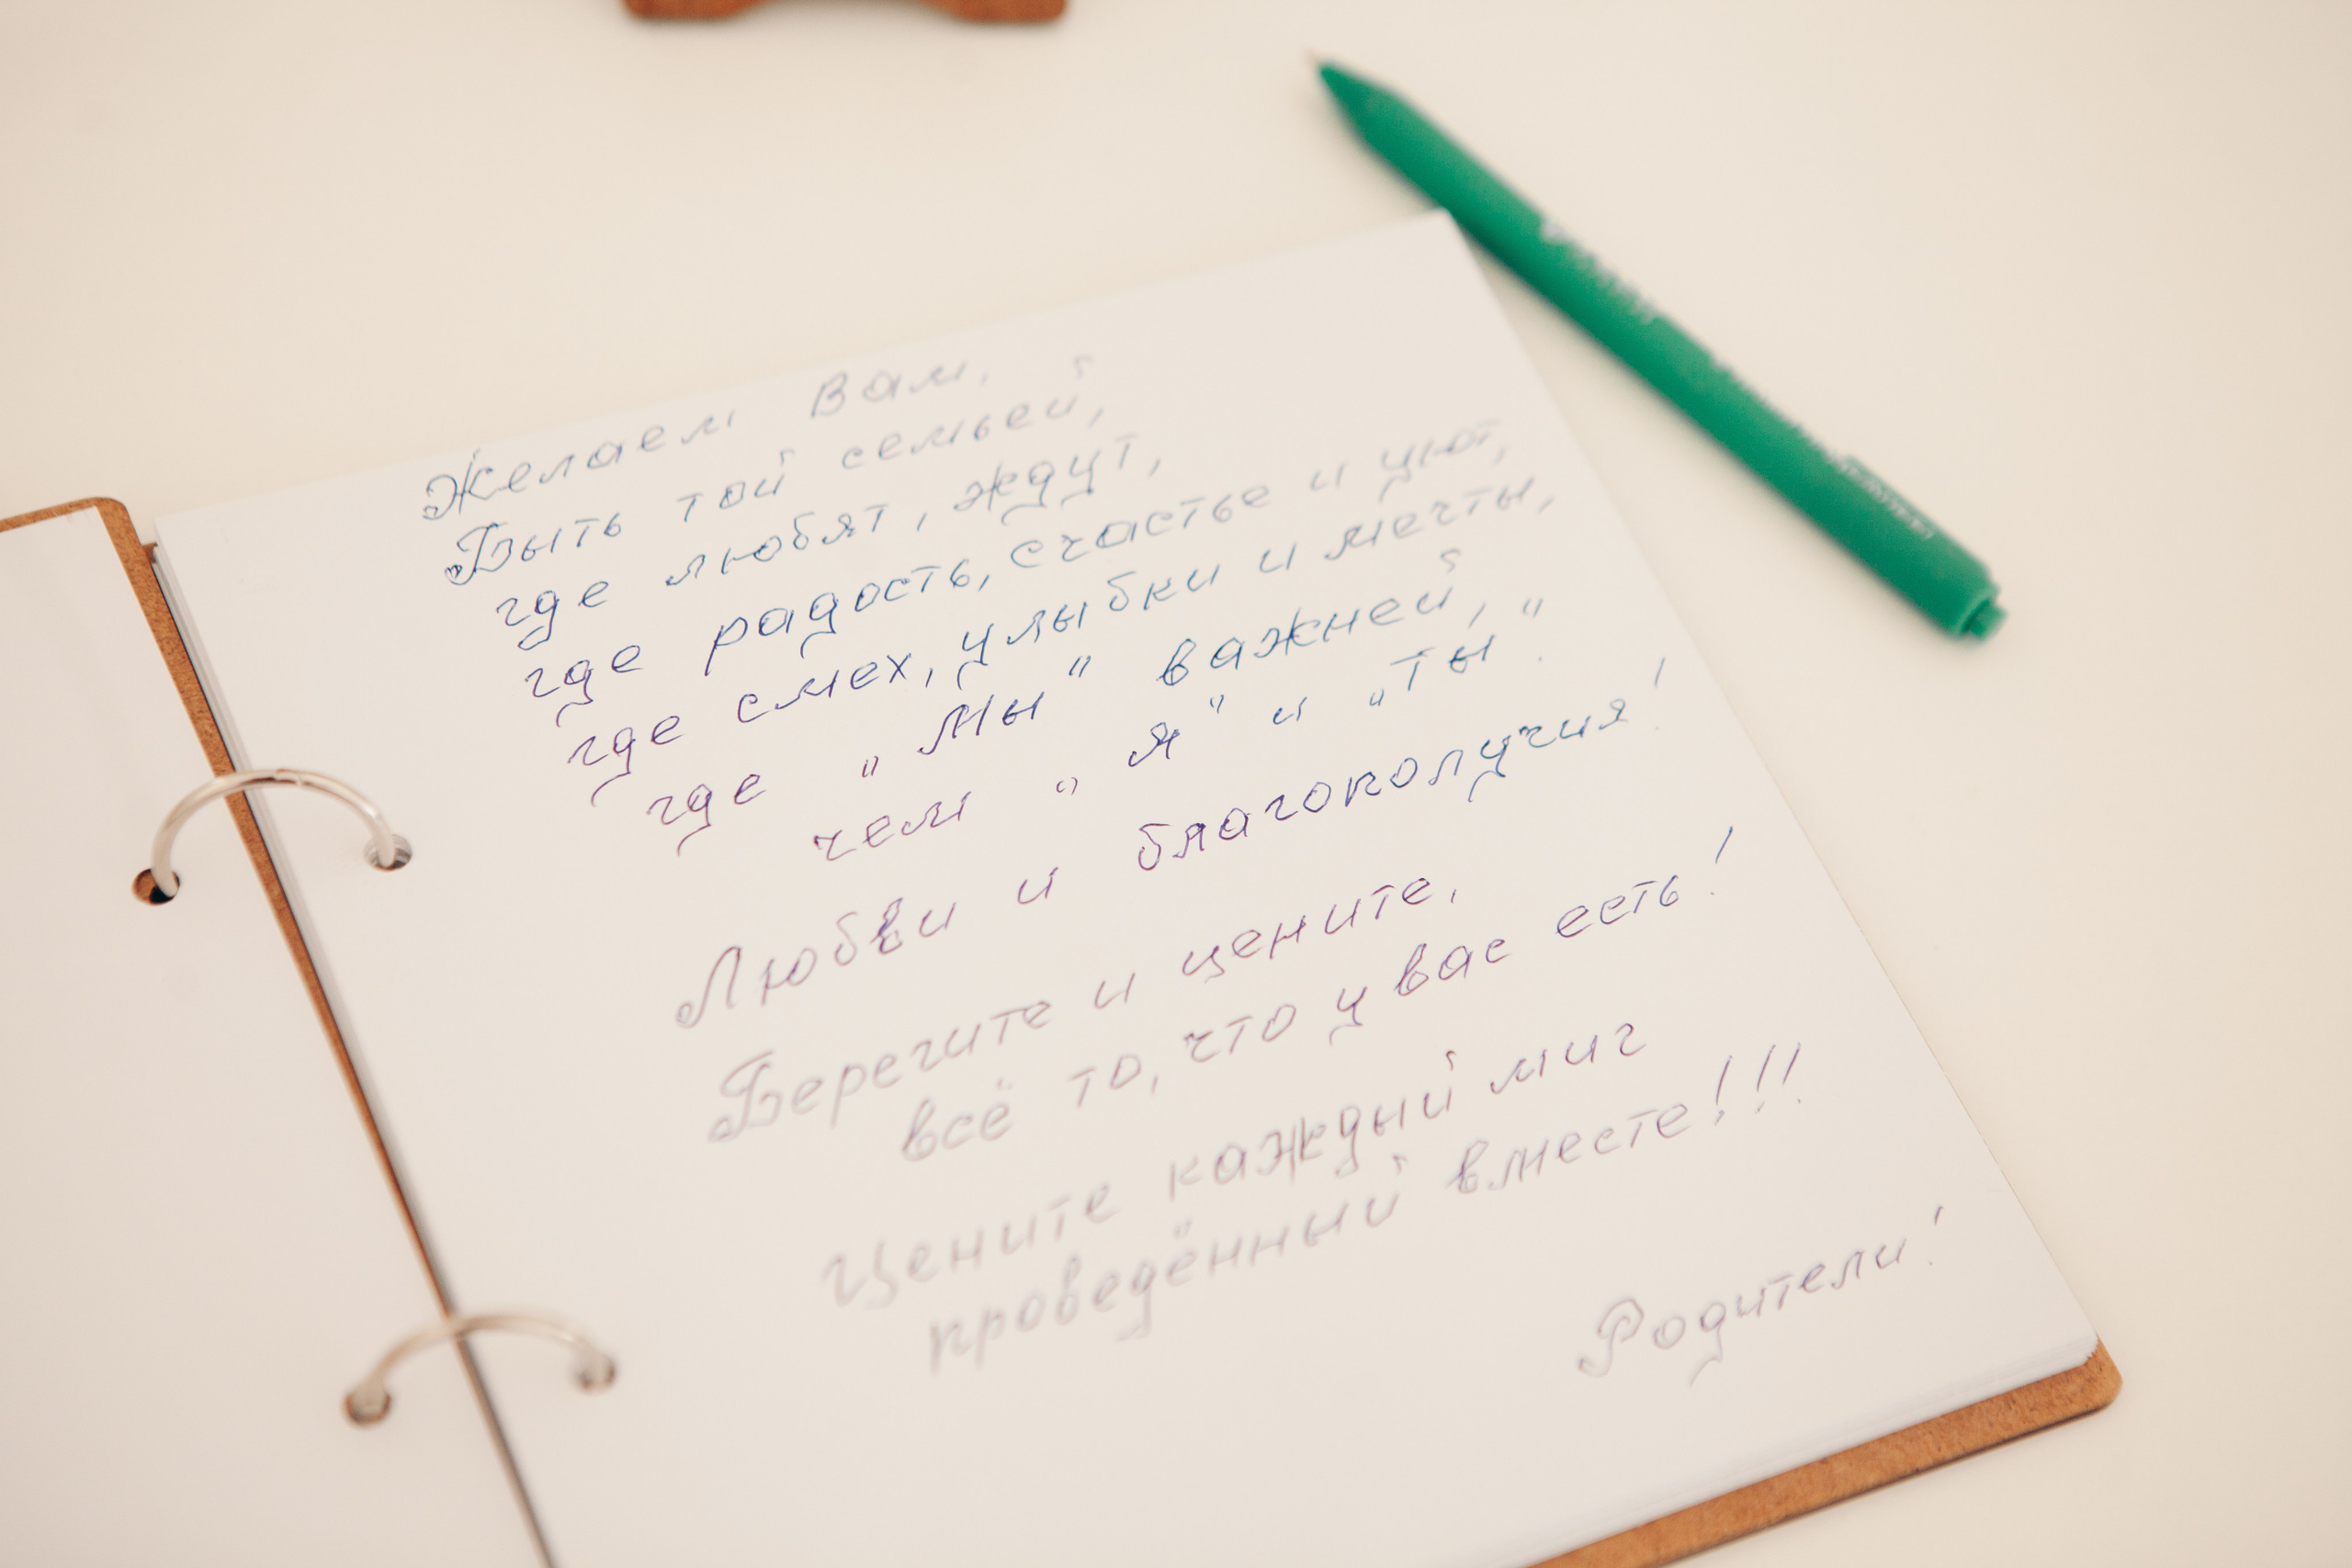 Желаем Вам,
Быть той семьей,
где любят, ждут,
где радость, счастье и уют,
где смех, улыбки и мечты,
где „Мы" важней,
чем „Я" и „Ты".
Любви и благополучия!
Берегите и цените,
всё то, что у вас есть!
Цените каждый миг
проведённый вместе!!!
Родители!